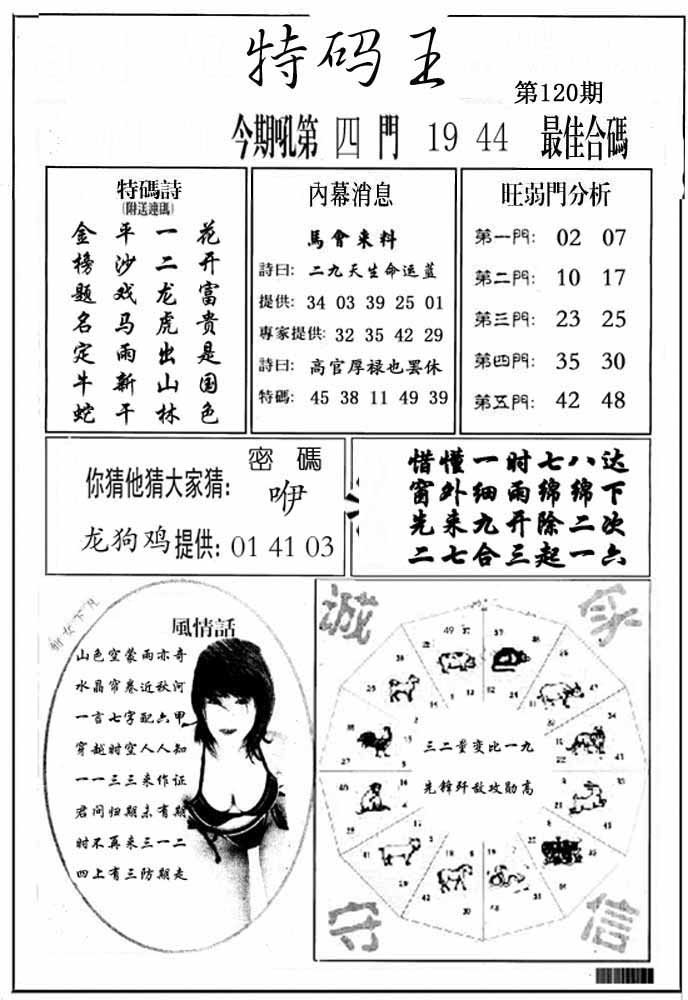 特码王
第120期
今期吼第 四 門 19 44 最佳合碼
特碼詩
(附送連碼)
花开富贵是国色
一二龙虎出山林
平沙戏马雨新干
金榜题名定牛蛇
內幕消息
馬會来料
詩曰: 二九天生命运蓝
提供: 34 03 39 25 01
專家提供: 32 35 42 29
詩曰: 高官厚禄也罢休
特碼: 45 38 11 49 39
旺弱門分析
第一門: 02 07
第二門: 10 17
第三門: 23 25
第四門: 35 30
第五門: 42 48
密碼
你猜他猜大家猜: 咿
龙狗鸡提供: 01 41 03
惜懂一时七八达
窗外细雨绵绵下
先来九开除二次
二七合三起一六
下凡
風情話
山色空蒙雨亦奇
水晶帘卷近秋河
一言七字配六甲
穿越时空人人知
一一三三来作证
君问归期未有期
时不再来三一二
四上有三防期走
诚
守
信
三二量变比一九
先锋歼敌攻勋高
49
37